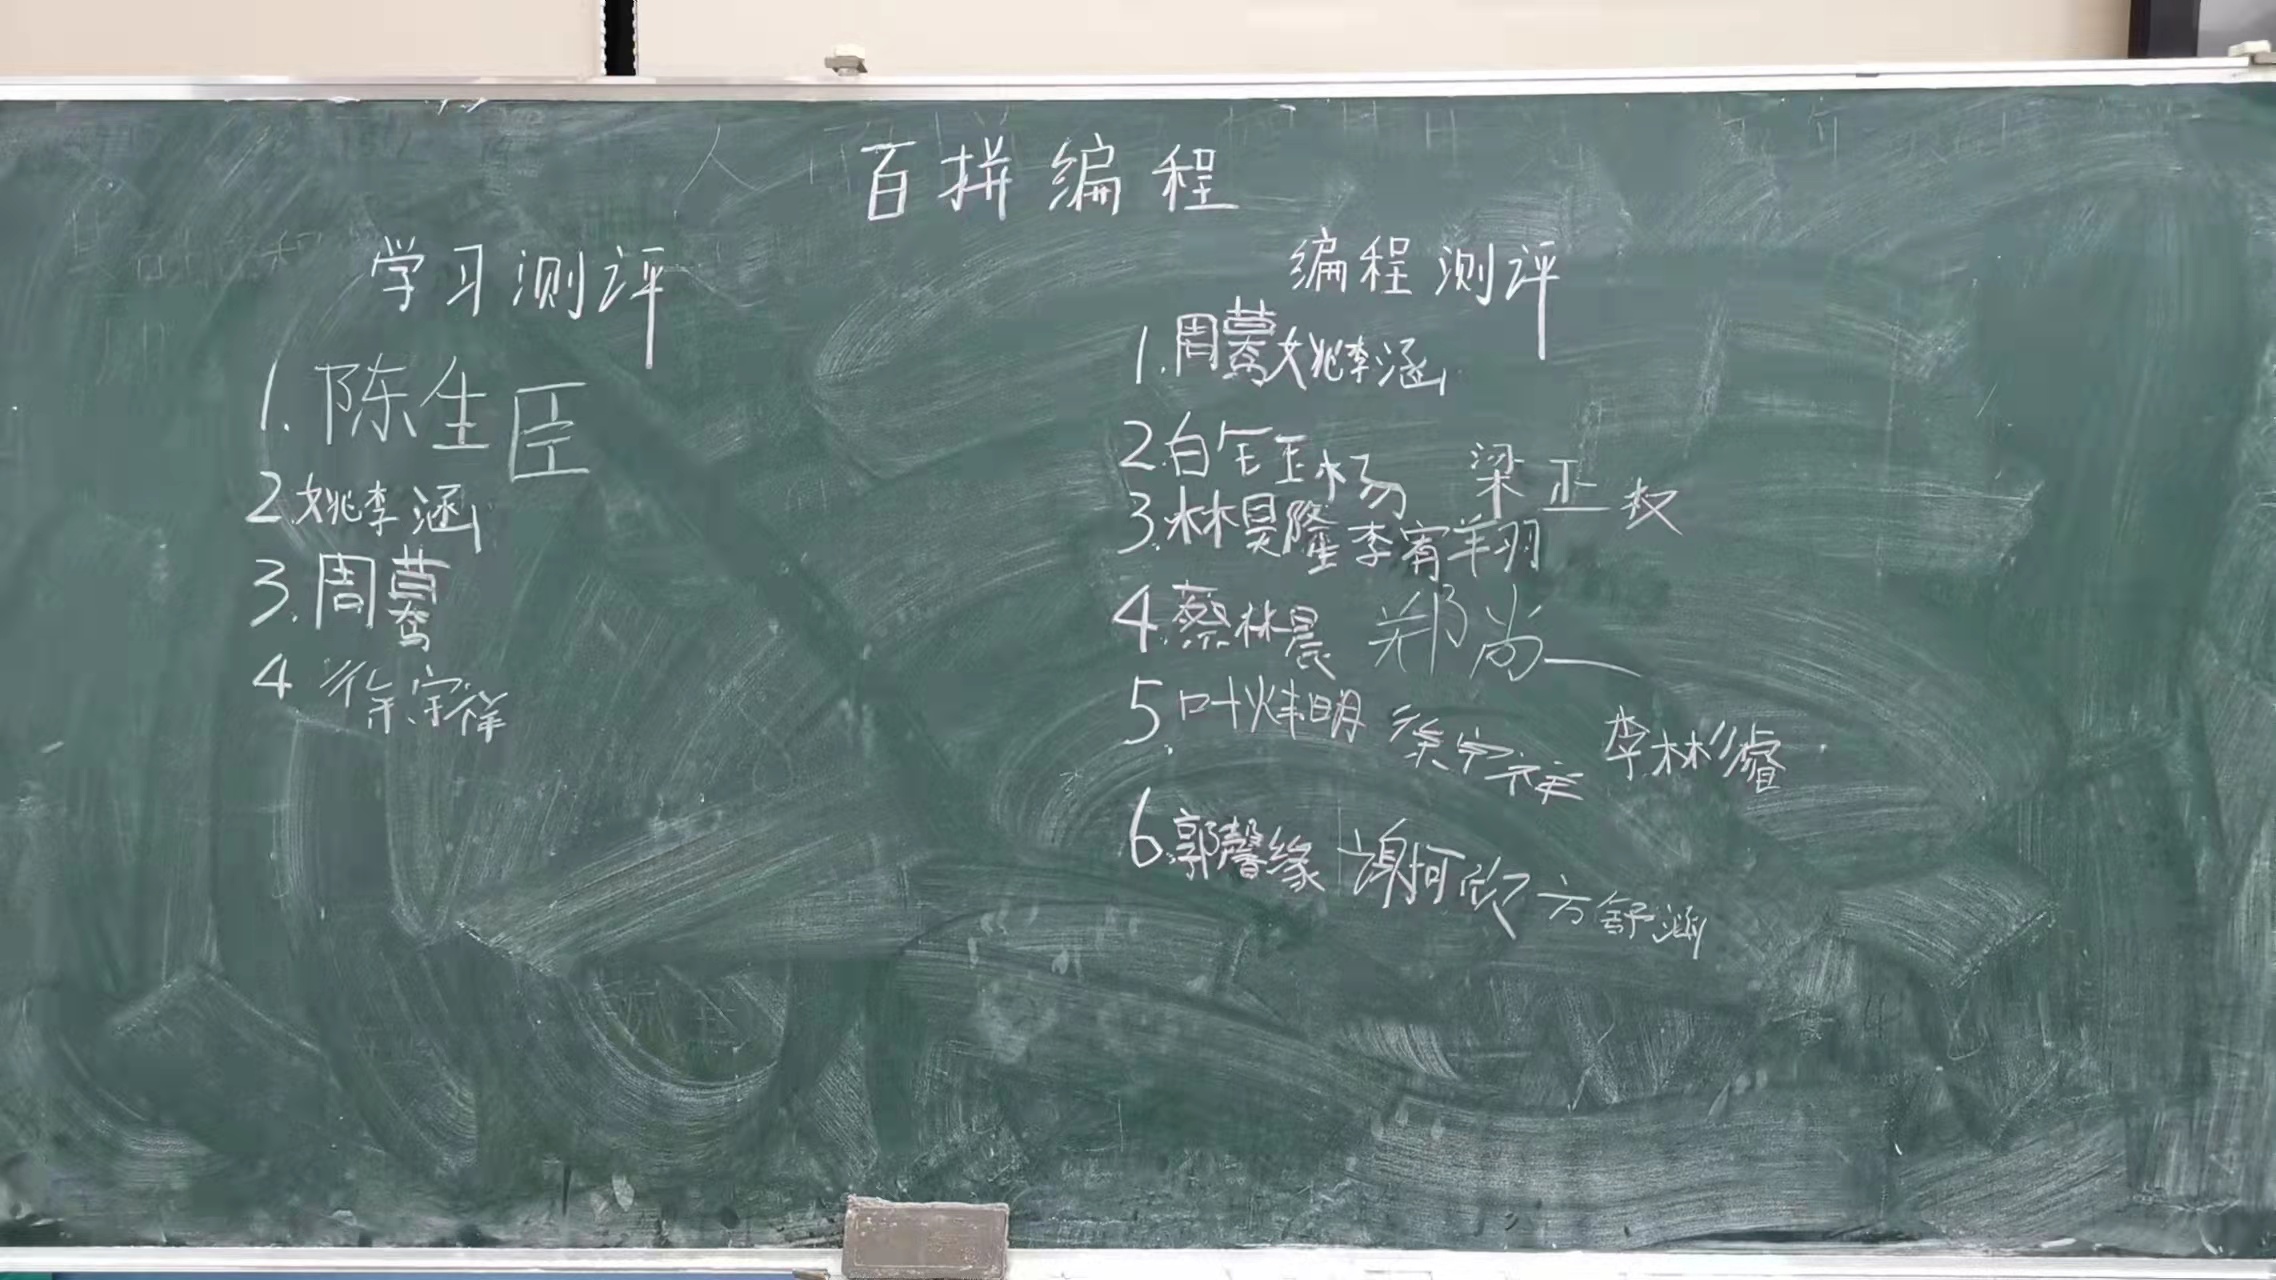 百拼编程
学习测评
1. 陈生臣
2. 姚李涵
3. 周蓦
4 徐宗祥
编程测评
1. 周蓦 姚李涵
2. 白钰杨 梁正权
3. 林昊隆 李宵翔
4. 蔡林晨 郑尚一
5. 叶炜明 徐宗祥 李彬睿
6. 郭馨缘 谢珂欣 方舒涵